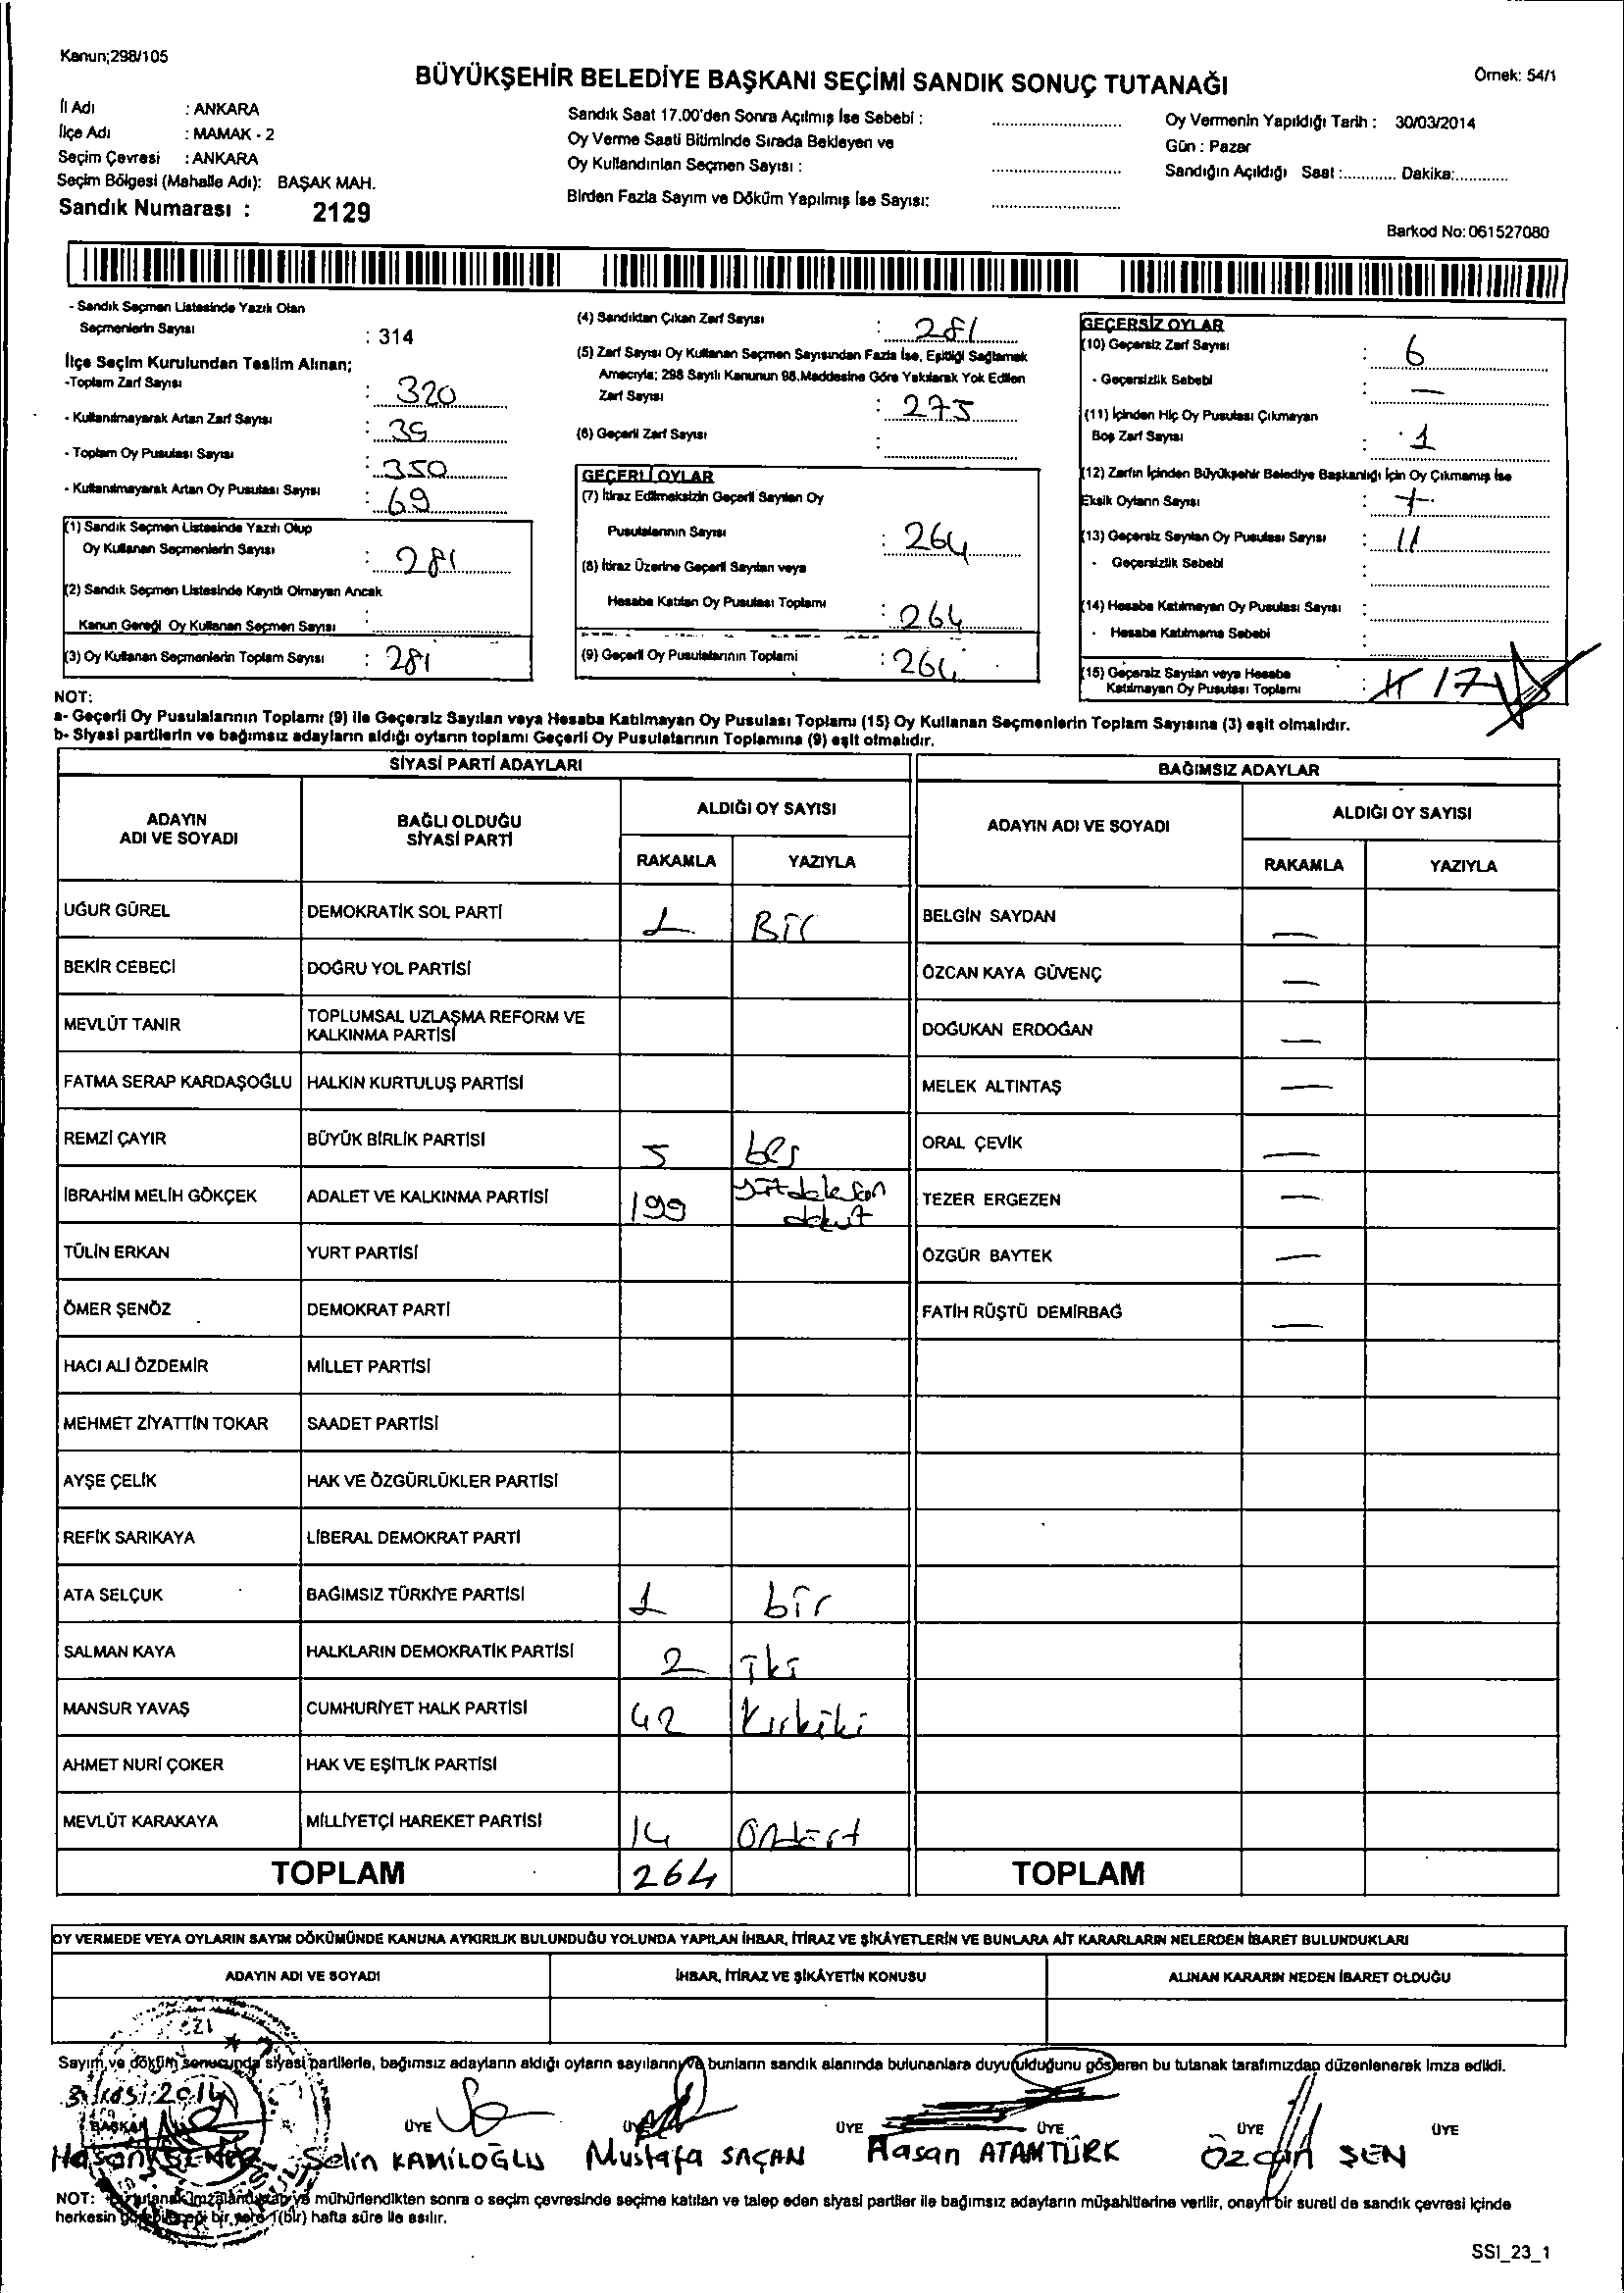 Kanun;298/105
BÜYÜKŞEHİR BELEDİYE BAŞKANI SEÇİMİ SANDIK SONUÇ TUTANAĞI
Örnek: 54/1
İl Adı : ANKARA
İlçe Adı : MAMAK - 2
Seçim Çevresi : ANKARA
Seçim Bölgesi (Mahalle Adı): BAŞAK MAH.
Sandık Numarası : 2129
Sandık Saat 17.00'den Sonra Açılmış İse Sebebi :
Oy Verme Saati Bitiminde Sırada Bekleyen ve
Oy Kullandırılan Seçmen Sayısı :
Birden Fazla Sayım ve Döküm Yapılmış İse Sayısı:
Oy Vermenin Yapıldığı Tarih : 30/03/2014
Gün : Pazar
Sandığın Açıldığı Saat :............ Dakika:............
Barkod No: 061527080
- Sandık Seçmen Listesinde Yazılı Olan
Seçmenlerin Sayısı : 314
İlçe Seçim Kurulundan Teslim Alınan;
-Toplam Zarf Sayısı : 320
- Kullanılmayarak Artan Zarf Sayısı : 39
- Toplam Oy Pusulası Sayısı : 350
- Kullanılmayarak Artan Oy Pusulası Sayısı : 69
(1) Sandık Seçmen Listesinde Yazılı Olup
Oy Kullanan Seçmenlerin Sayısı : 281
(2) Sandık Seçmen Listesinde Kayıtlı Olmayan Ancak
Kanun Gereği Oy Kullanan Seçmen Sayısı :
(3) Oy Kullanan Seçmenlerin Toplam Sayısı : 281
(4) Sandıktan Çıkan Zarf Sayısı : 281
(5) Zarf Sayısı Oy Kullanan Seçmen Sayısından Fazla İse, Eşitliği Sağlamak
Amacıyla; 298 Sayılı Kanunun 98.Maddesine Göre Yakılarak Yok Edilen
Zarf Sayısı : 275
(6) Geçerli Zarf Sayısı :
GEÇERLİ OYLAR
(7) İtiraz Edilmeksizin Geçerli Sayılan Oy
Pusulalarının Sayısı : 264
(8) İtiraz Üzerine Geçerli Sayılan veya
Hesaba Katılan Oy Pusulası Toplamı : 264
(9) Geçerli Oy Pusulalarının Toplamı : 264
GEÇERSİZ OYLAR
(10) Geçersiz Zarf Sayısı : 6
- Geçersizlik Sebebi : —
(11) İçinden Hiç Oy Pusulası Çıkmayan
Boş Zarf Sayısı : 1
(12) Zarfın İçinden Büyükşehir Belediye Başkanlığı İçin Oy Çıkmamış İse
Eksik Oyların Sayısı :
(13) Geçersiz Sayılan Oy Pusulası Sayısı : 11
- Geçersizlik Sebebi :
(14) Hesaba Katılmayan Oy Pusulası Sayısı :
- Hesaba Katılmama Sebebi :
(15) Geçersiz Sayılan veya Hesaba
Katılmayan Oy Pusulası Toplamı : 17
NOT:
a- Geçerli Oy Pusulalarının Toplamı (9) ile Geçersiz Sayılan veya Hesaba Katılmayan Oy Pusulası Toplamı (15) Oy Kullanan Seçmenlerin Toplam Sayısına (3) eşit olmalıdır.
b- Siyasi partilerin ve bağımsız adayların aldığı oyların toplamı Geçerli Oy Pusulalarının Toplamına (9) eşit olmalıdır.
SİYASİ PARTİ ADAYLARI
ADAYIN ADI VE SOYADI
BAĞLI OLDUĞU SİYASİ PARTİ
ALDIĞI OY SAYISI
RAKAMLA YAZIYLA
UĞUR GÜREL DEMOKRATİK SOL PARTİ 1 Bir
BEKİR CEBECİ DOĞRU YOL PARTİSİ
MEVLÜT TANIR TOPLUMSAL UZLAŞMA REFORM VE KALKINMA PARTİSİ
FATMA SERAP KARDAŞOĞLU HALKIN KURTULUŞ PARTİSİ
REMZİ ÇAYIR BÜYÜK BİRLİK PARTİSİ 5 beş
İBRAHİM MELİH GÖKÇEK ADALET VE KALKINMA PARTİSİ 199
TÜLİN ERKAN YURT PARTİSİ
ÖMER ŞENÖZ DEMOKRAT PARTİ
HACI ALİ ÖZDEMİR MİLLET PARTİSİ
MEHMET ZİYATTİN TOKAR SAADET PARTİSİ
AYŞE ÇELİK HAK VE ÖZGÜRLÜKLER PARTİSİ
REFİK SARIKAYA LİBERAL DEMOKRAT PARTİ
ATA SELÇUK BAĞIMSIZ TÜRKİYE PARTİSİ 1 bir
SALMAN KAYA HALKLARIN DEMOKRATİK PARTİSİ 2 iki
MANSUR YAVAŞ CUMHURİYET HALK PARTİSİ 42 Kırkiki
AHMET NURİ ÇOKER HAK VE EŞİTLİK PARTİSİ
MEVLÜT KARAKAYA MİLLİYETÇİ HAREKET PARTİSİ 14 Ondört
TOPLAM 264
BAĞIMSIZ ADAYLAR
ADAYIN ADI VE SOYADI
ALDIĞI OY SAYISI
RAKAMLA YAZIYLA
BELGİN SAYDAN —
ÖZCAN KAYA GÜVENÇ —
DOĞUKAN ERDOĞAN —
MELEK ALTINTAŞ —
ORAL ÇEVİK —
TEZER ERGEZEN —
ÖZGÜR BAYTEK —
FATİH RÜŞTÜ DEMİRBAĞ —
TOPLAM
OY VERMEDE VEYA OYLARIN SAYIM DÖKÜMÜNDE KANUNA AYKIRILIK BULUNDUĞU YOLUNDA YAPILAN İHBAR, İTİRAZ VE ŞİKÂYETLERİN VE BUNLARA AİT KARARLARIN NELERDEN İBARET BULUNDUKLARI
ADAYIN ADI VE SOYADI
İHBAR, İTİRAZ VE ŞİKÂYETİN KONUSU
ALINAN KARARIN NEDEN İBARET OLDUĞU
Sayım ve döküm sonucunda siyasi partilerle, bağımsız adayların aldığı oyların sayılarını ve bunların sandık alanında bulunanlara duyurulduğunu gösteren bu tutanak tarafımızdan düzenlenerek imza edildi.
BAŞKAN ÜYE ÜYE ÜYE ÜYE ÜYE ÜYE
Hasan Selin KAMİLOĞLU Mustafa SAÇAN Hasan ATAMTÜRK Özcan ŞEN
NOT: Bu tutanak imzalandıktan ve mühürlendikten sonra o seçim çevresinde seçime katılan ve talep eden siyasi partiler ile bağımsız adayların müşahitlerine verilir, onaylı bir sureti de sandık çevresi içinde
herkesin görebileceği bir yere 1(bir) hafta süre ile asılır.
SSI_23_1